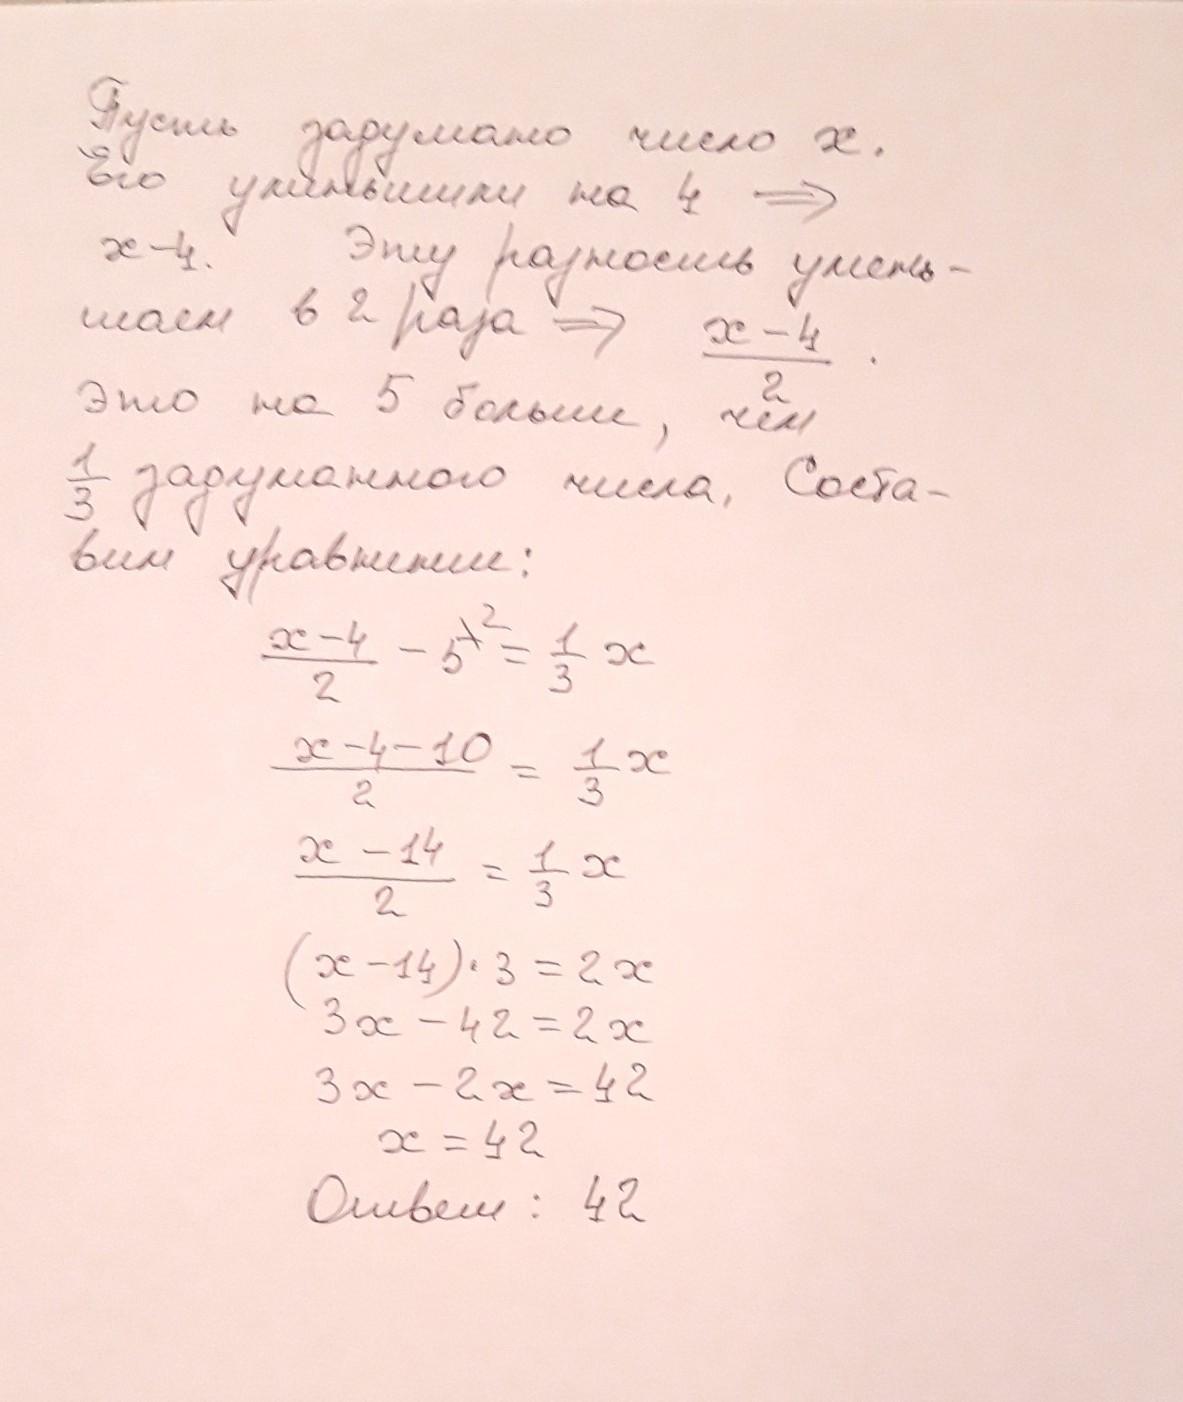 Пусть задумано число x.
Его уменьшили на 4 ⇒
x-4. Эту разность умень-
шаем в 2 раза ⇒ (x-4)/2.
Это на 5 больше, чем
1/3 задуманного числа, Соста-
вим уравнение:
(x-4)/2 - 5\2 = 1/3 x
(x-4-10)/2 = 1/3 x
(x-14)/2 = 1/3 x
(x-14)·3=2x
3x-42=2x
3x-2x=42
x=42
Ответ: 42